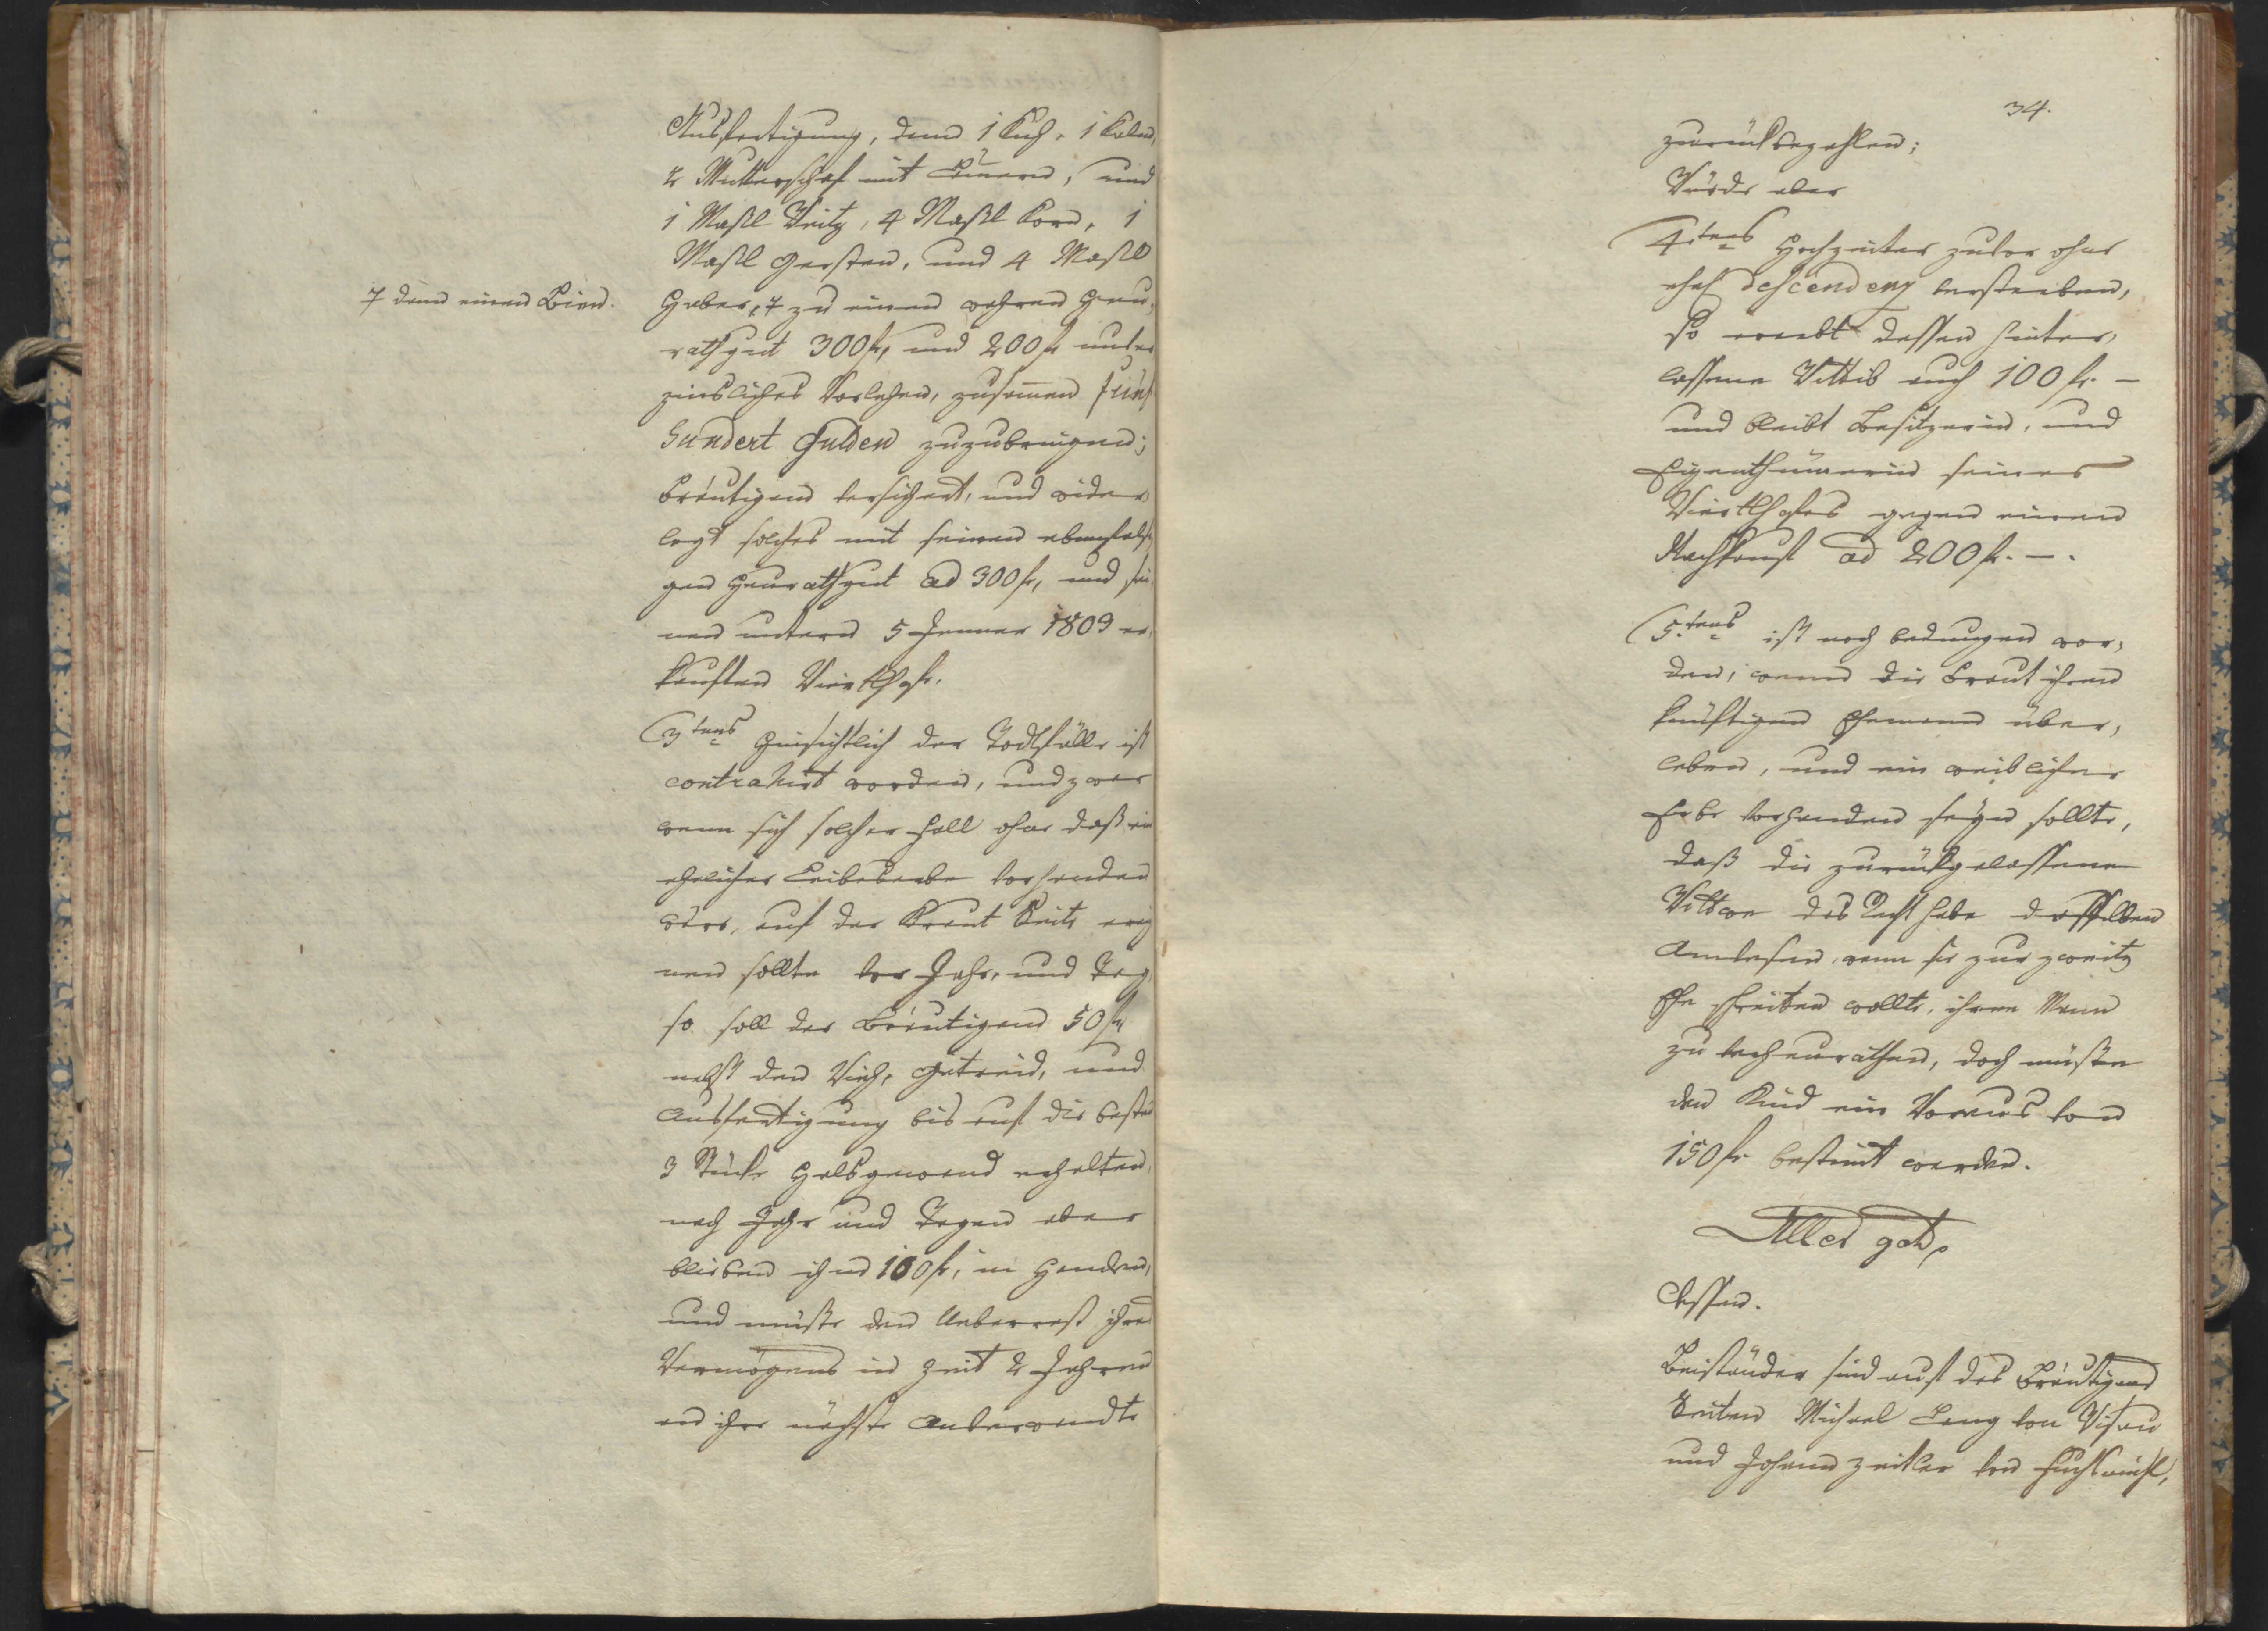 Ausfertigung, dann 1 Kuh, 1 Kalm,
2 Mutterschaf mit Lämern, und
1 Maßl Weitz, 4 Maßl Korn, 1
Maßl Gersten, und 4 Maßl
Haber, ⚹ zu einen wahren Heu,
⚹ dann einen Bien.
rathgut 300 fl, und 200 fl unver
zinsliches Vorlehen, zusamen fünf
hundert Gulden zuzubringen;
Bräutigam versichert, und wider
legt solches mit seinen
gen Heurathgut ad 300 fl, und sei,
nen untern 5 Jenner 1809 er,
kauften Viertlhofe.
3tens Hinsichtlich der Todtfälle ist
contrahirt worden, und zwar
wenn sich solcher Fall ohne daß ein
ehelicher Leibeserbe vorhanden
wäre, auf der Braut Seite ereig
nen sollte vor Jahr, und Tag,
so soll der Bräutigam 50 fl
nebst den Vieh, Getreid, und
Ausfertigung bis auf die besten
3 Stücke Halsgewand erhalten,
nach Jahr und Tagen aber
blieben ihm 100 fl, in Handen,
und müßte den Ueberrest ihres
Vermögens in Zeit 2 Jahren
an ihre nächste Anverwandte
34.
zurückbezahlen;
Würde aber
4.tens Hochzeiter zuvor ohne
ehel descendenz versterben,
so ererbt dessen hinter,
lassene Wittib auch 100 fl. –
und bleibt Besitzerin, und
Eigenthümerin seines
Viertlhofes gegen einen
Nachkauf ad 200 fl. –.
5.tens ist noch bedungen wor,
den, wenn die Braut ihren
künftigen Ehemann über,
leben, und ein weiblicher
Erbe vorhanden seyn sollte,
daß die zurückgelassene
Wittwe das Recht habe dasselben
Anwesen, wenn sie zur zweit
Ehe schreiten wollte, ihren Mann
zu verheurathen, doch müßte
den Kind ein Voraus von
150 fl bestimt werden.
Alles
Beiständer sind auf des Bräutigams
Seiten Michael Lang von
und Johann Zeitler von